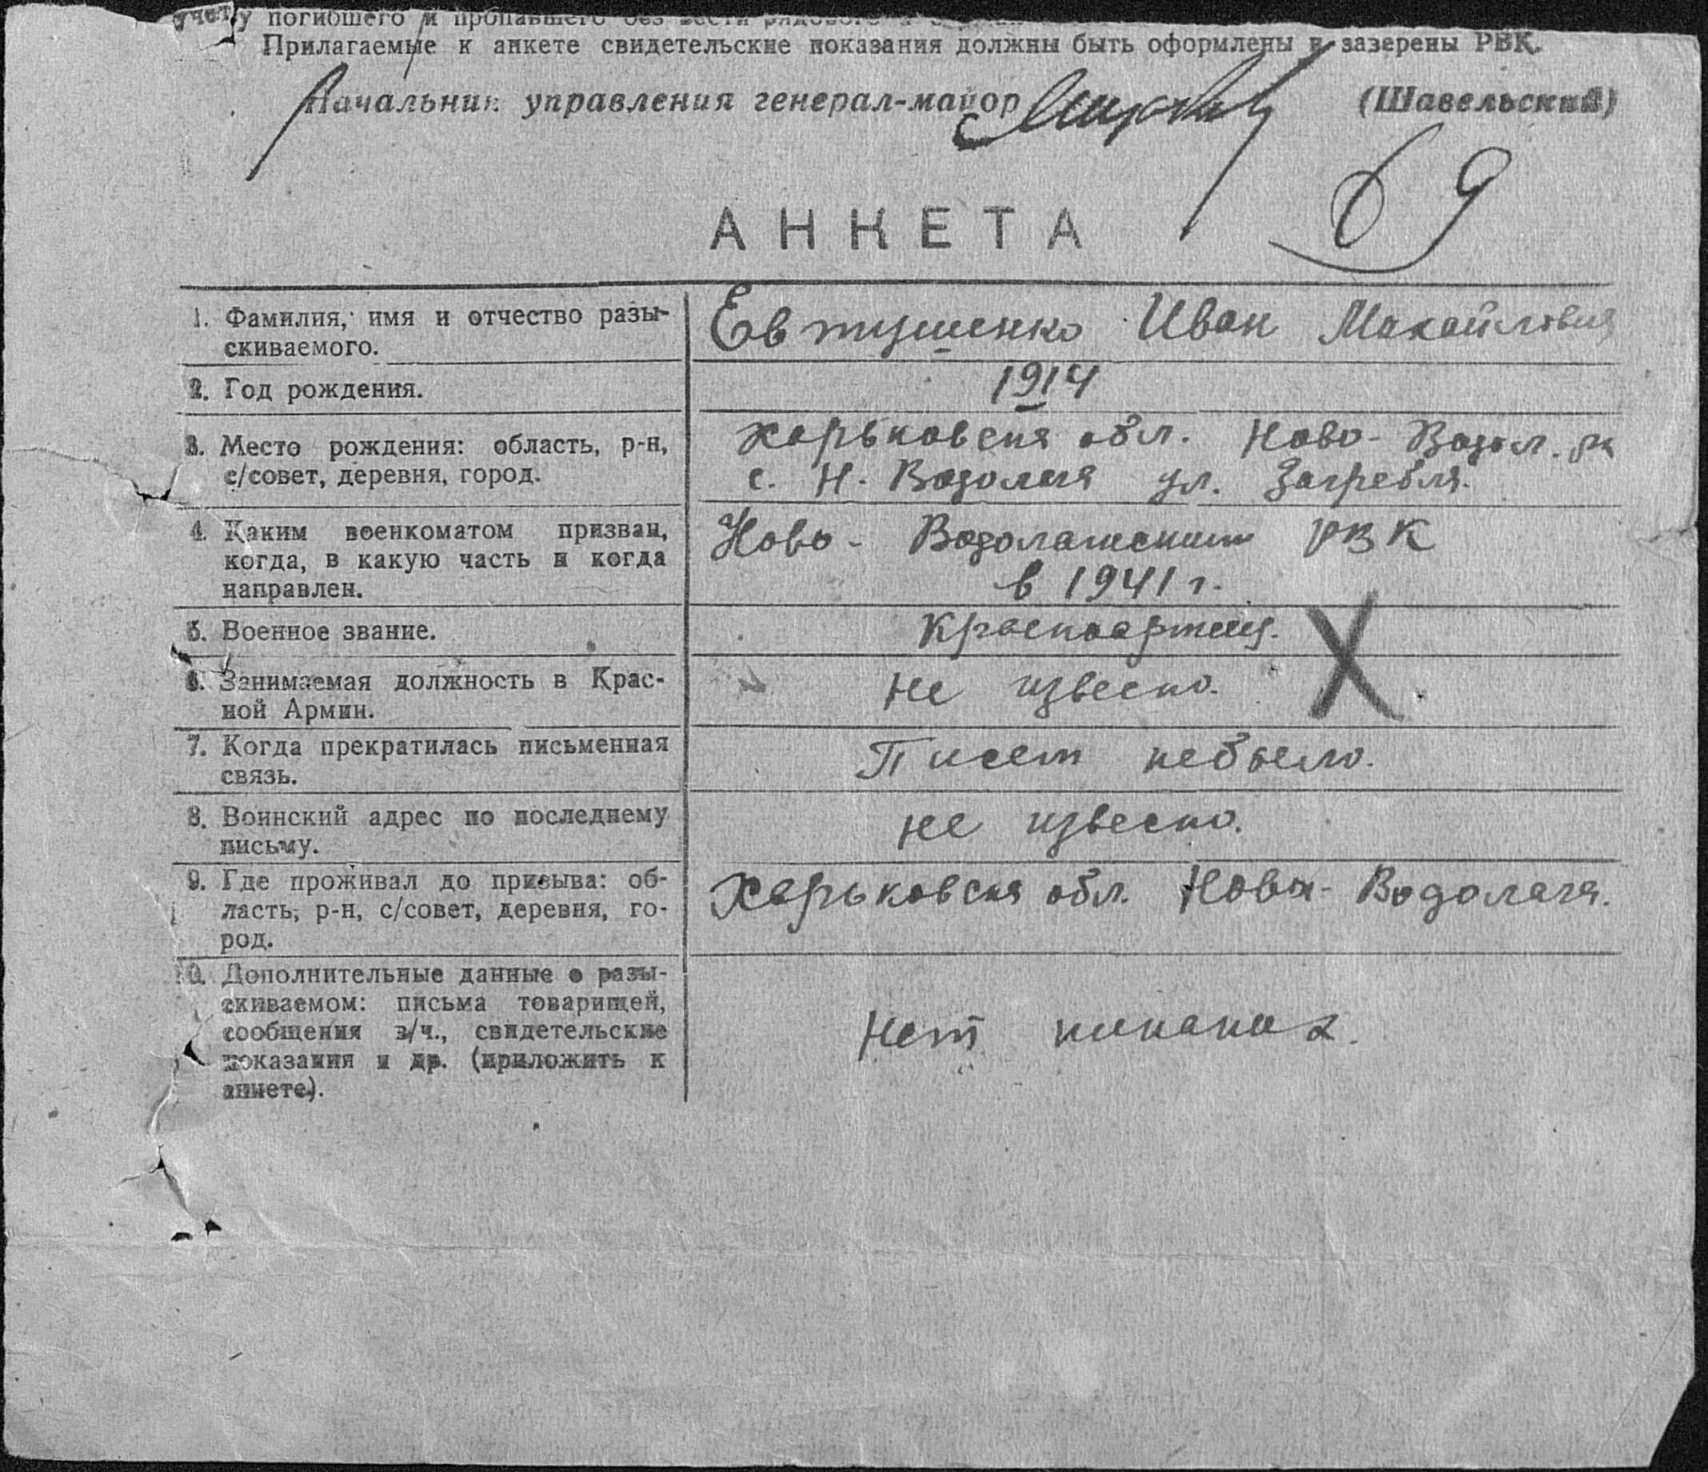 учету погибшего и пропавшего без вести рядового
Прилагаемые к анкете свидетельские показания должны быть оформлены и зазерены РВК.
Начальник управления генерал-майор (Шавельский)
69
АНКЕТА
1. Фамилия, имя и отчество разы-
скиваемого.
Евтушенко Иван Мохайлович
2. Год рождения.
1914
3. Место рождения: область, р-н,
с/совет, деревня, город.
Харьковская обл. Ново-Водол. рн
с. Н. Водолага ул. Загребля.
4. Каким военкоматом призван,
когда, в какую часть и когда
направлен.
Ново-Водолажским РВК
в 1941 г.
5. Военное звание.
Красноармеец.
6. Занимаемая должность в Крас-
ной Армии.
не извесно.
7. Когда прекратилась письменная
связь.
Писем небыло.
8. Воинский адрес по последнему
письму.
не извесно.
9. Где проживал до призыва: об-
ласть, р-н, с/совет, деревня, го-
род.
Харьковская обл. Нова-Водолага.
10. Дополнительные данные о разы-
скиваемом: письма товарищей,
сообщения в/ч., свидетельские
показания и др. (приложить к
анкете).
Нет никаких.